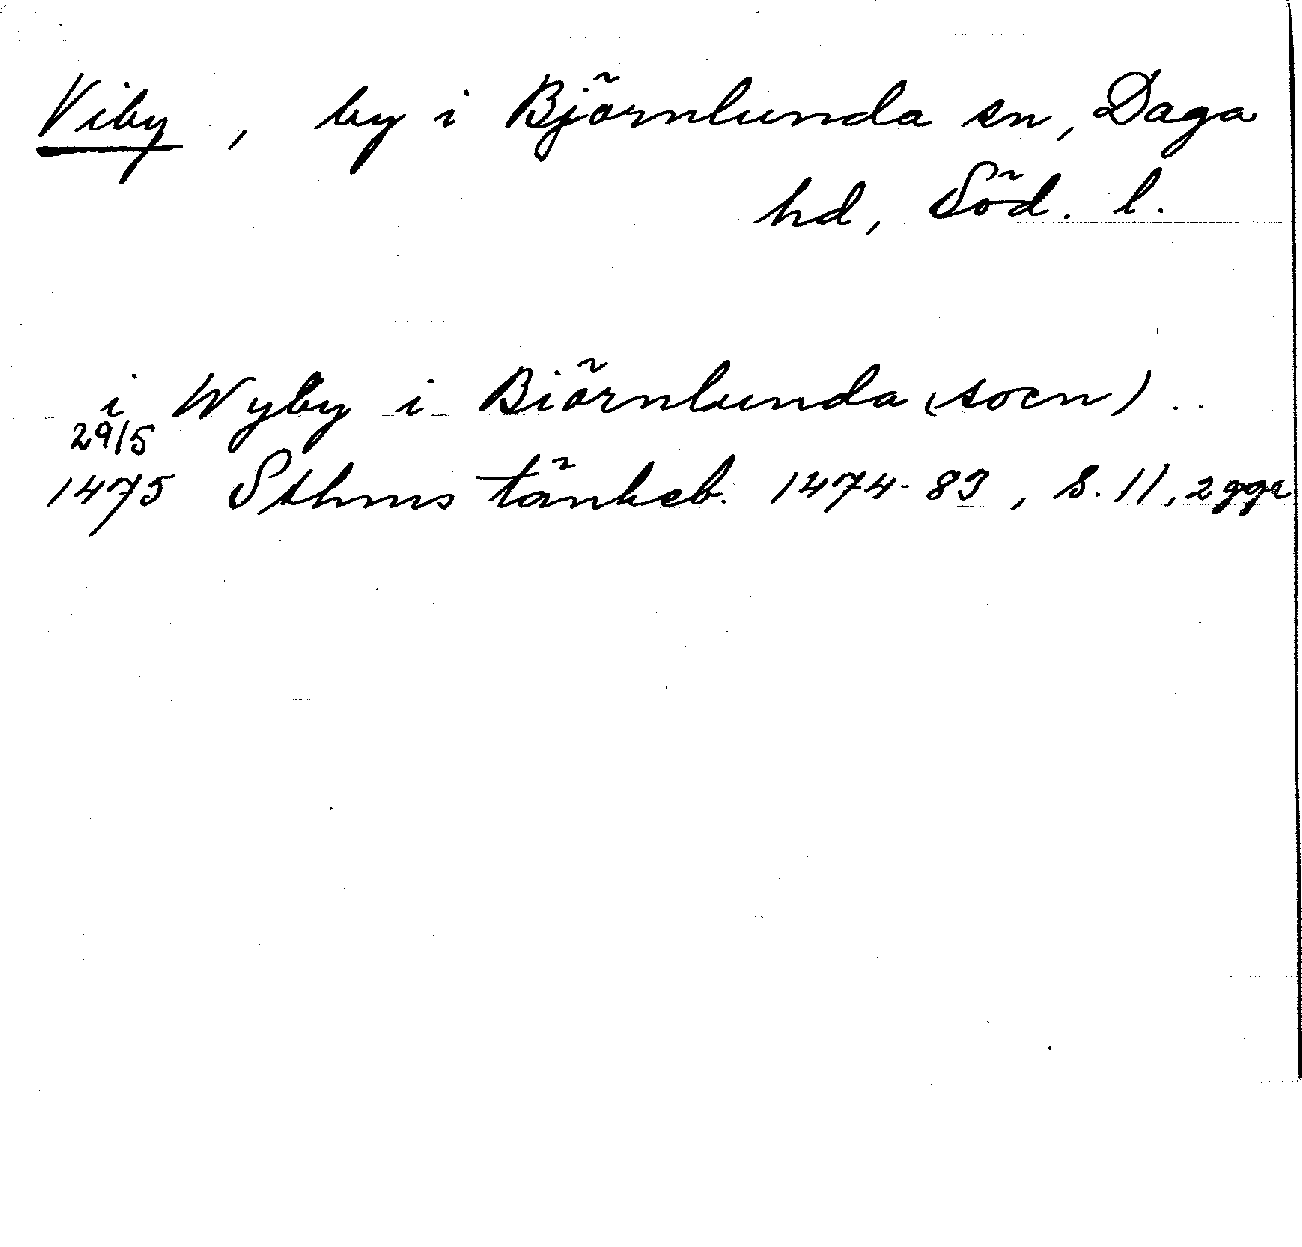 Viby, by i Björnlunda sn, Daga
hd, Söd. l.
i Wyby i Biörnlunda (socn) ..
29/5
1475 Sthms tänkeb. 1474-83, s. 11, 2 ggr